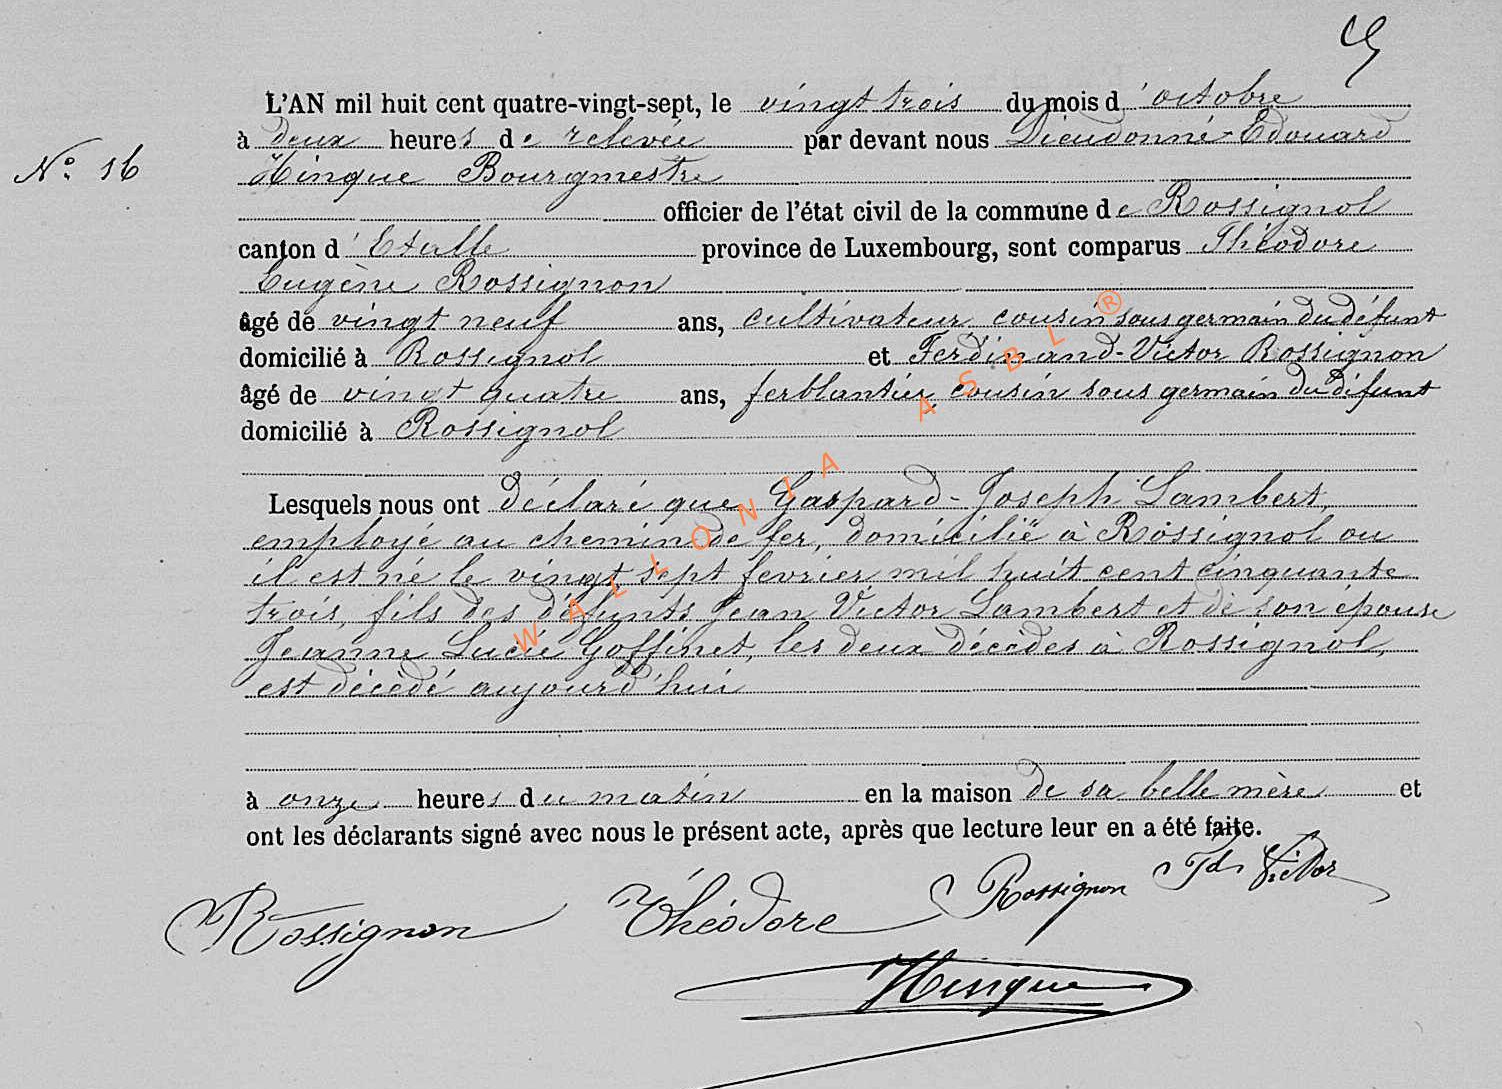 L'AN mil huit cent quatre-vingt-sept, le vingt trois du mois d'octobre
à deux heures de relevée par devant nous Dieudonné-Edouard
N° 16
Hinque Bourgmestre
officier de l'état civil de la commune de Rossignol
canton d'Etalle province de Luxembourg, sont comparus Théodore
Eugène Rossignon
âgé de vingt neuf ans, cultivateur, cousin sous germain du défunt
domicilié à Rossignol et Ferdinand-Victor Rossignon
âgé de vingt quatre ans, ferblantier, cousin sous germain du défunt
domicilié à Rossignol
Lesquels nous ont déclaré que Gaspard-Joseph Lambert,
employé au chemin de fer, domicilié à Rossignol ou
il est né le vingt sept fevrier mil huit cent cinquante
trois, fils des défunts Jean Victor Lambert et de son épouse
Jeanne Lucie Goffinet, les deux décédés à Rossignol,
est décédé aujourd'hui
à onze heures du matin en la maison de sa belle mère et
ont les déclarants signé avec nous le présent acte, après que lecture leur en a été faite.
Rossignon Théodore Rossignon Fd Victor
Hinque
WALLONIA ASBL ®